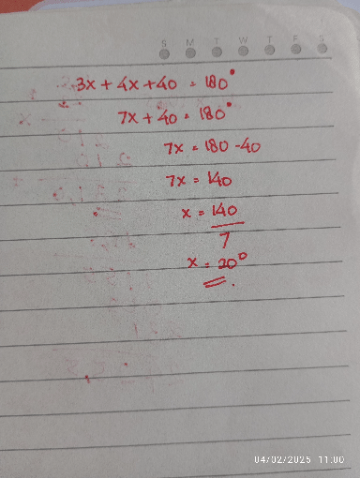 S M T W T F S
3x + 4x + 40 = 180°
7x + 40 = 180°
7x = 180 - 40
7x = 140
x = 140
7
x = 20°
04/02/2025 11:00